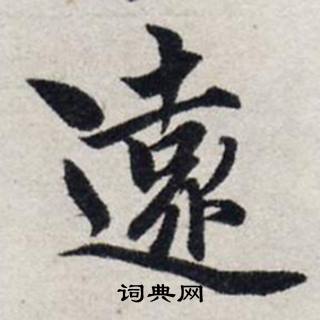 遠
词典网